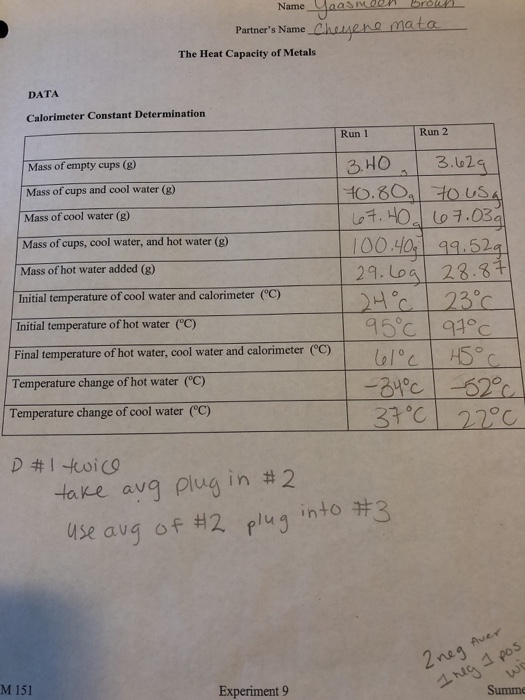 Name Yaasmeen Brown
Partner's Name Cheyene mata
The Heat Capacity of Metals
DATA
Calorimeter Constant Determination
Run 1 Run 2
Mass of empty cups (g) 3.40 g 3.62g
Mass of cups and cool water (g) 70.80g 70.65g
Mass of cool water (g) 67.40g 67.03g
Mass of cups, cool water, and hot water (g) 100.40g 99.52g
Mass of hot water added (g) 29.60g 28.87
Initial temperature of cool water and calorimeter (°C) 24°C 23°C
Initial temperature of hot water (°C) 95°C 97°C
Final temperature of hot water, cool water and calorimeter (°C) 61°C 45°C
Temperature change of hot water (°C) -34°C -52°C
Temperature change of cool water (°C) 37°C 22°C
D #1 twice
take avg plug in #2
use avg of #2 plug into #3
2 neg Aver
1 neg 1 pos
M 151 Experiment 9 Summe